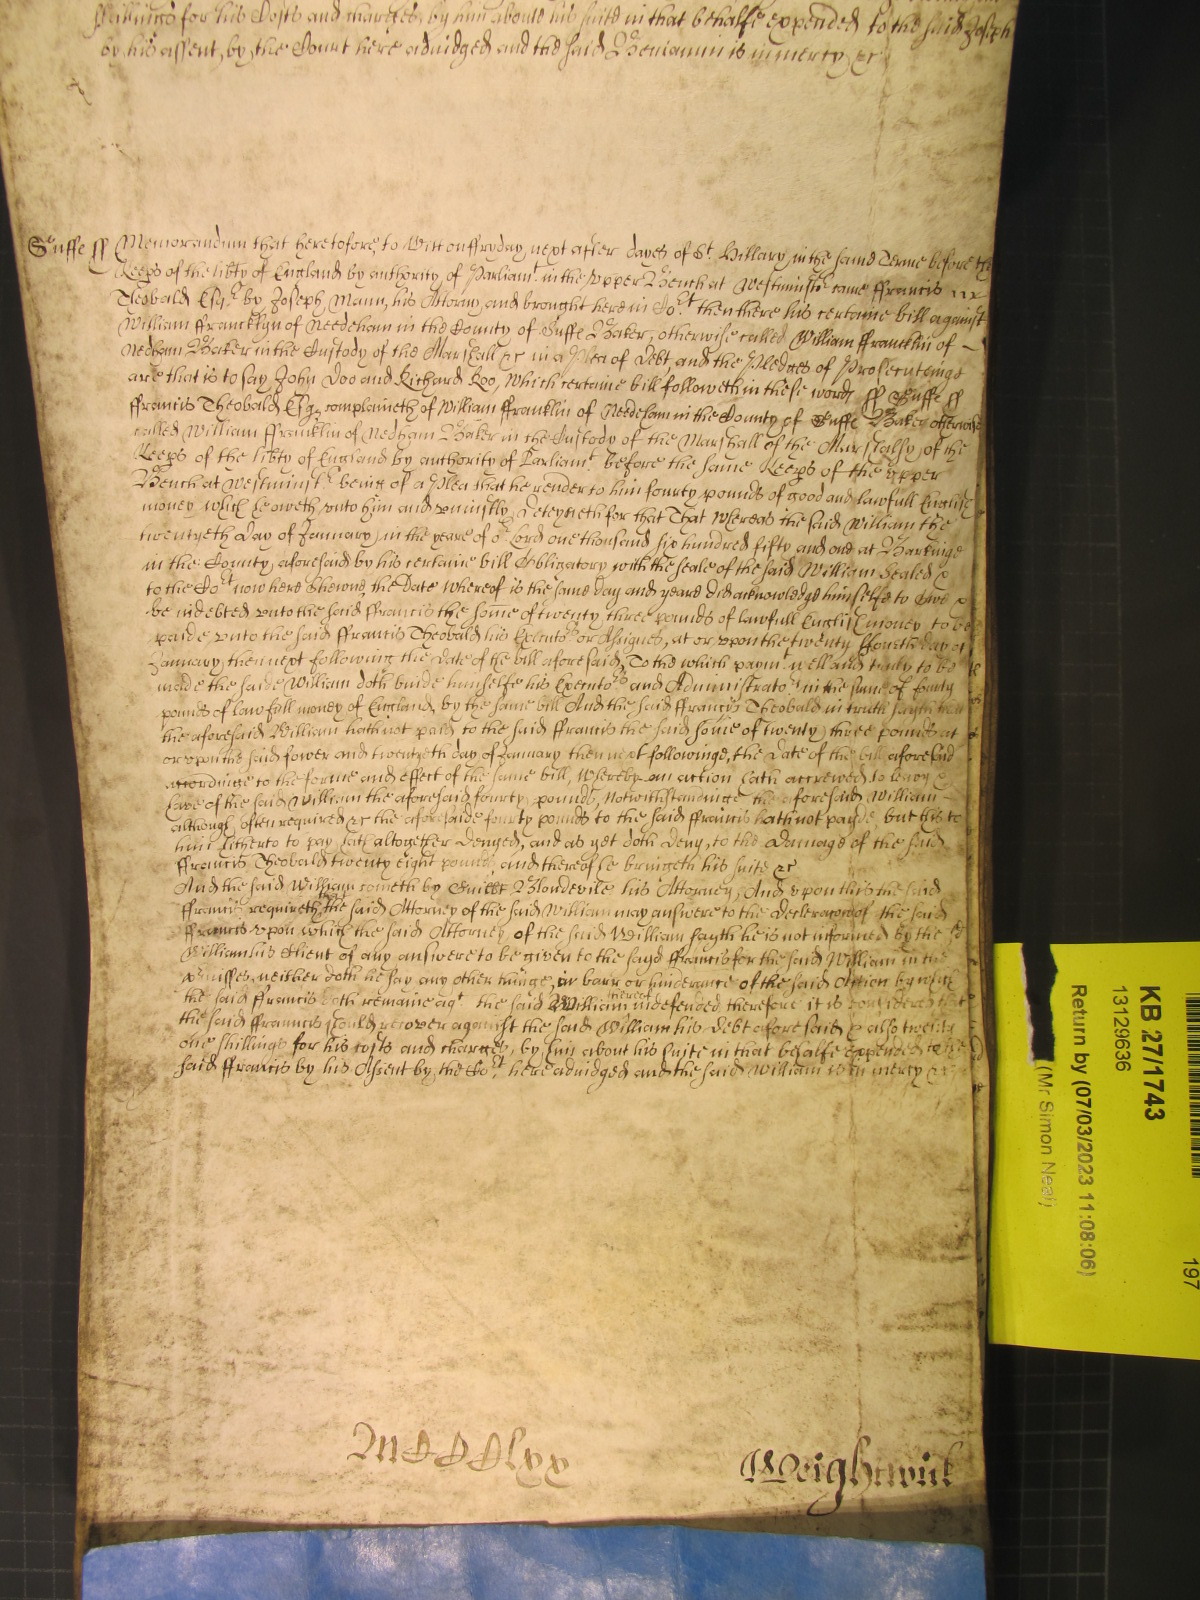 shillings for his Costs and charges by him about his suite in that behalfe expended to the said Joseph
by his assent, by the Court here adiudged and the said Beniamin is in mercy &c
Suffe ss Memorandum that heretofore, to Witt on ffryday next after dayes of St. Hillary in the same Terme before the
Keeps of the libty of England by authority of Parliamt. in the vpper Bench at Westminstr. came ffrancis
Theobald Esqr. by Joseph Mann, his Attorny, and brought here in Cort. then there his certaine bill against
William ffrancklyn of Needeham in the County of Suffe Baker, otherwise called William ffrancklin of
Nedham Baker in the Custody of the Marshall &c in a Plea of Debt, and the Pledges of Prosecuteinge
are that is to say John Doo and Richard Roo, Which certaine bill followeth in these words ss Suffe ss
ffrancis Theobald Esqr complaineth of William ffranklin of Needeham in the County of Suffe Baker otherwise
called William ffranklin of Nedham Baker in the Custody of the Marshall of the Marshalsy of the
Keeps of the libty of England by authority of Parliamt. before the same Keeps of the vpper
Bench at Westminstr. being of a Plea that he render to him fourty pounds of good and lawfull English
money which he oweth vnto him and vniustly deteyneth for that That whereas the said William the
twentyeth Day of January, in the yeare of or Lord one thousand six hundred fifty and one at Barkinge
in the County aforesaid by his certaine bill Obligatory with the seale of the said William Sealed &
to the Cort now here Shewne, the Date whereof is the same day and yeare did acknowledge himselfe to Owe &
be indebted vnto the said ffrancis the some of twenty three pounds of lawfull English money to be
paide vnto the said ffrancis Theobald his Executors or Assignes, at or vpon the twenty ffourth day of
January, then next following the date of the bill aforesaid, To the which paymt. well and truly to be
made the saide William doth binde himselfe his Executors and Administrators in the sume of fourty
pounds of lawfull money of England, by the same bill And the said ffrancis Theobald in truth sayth that
the aforesaid William hath not paid to the said ffrancis the said some of twenty three pounds at
or vpon the said fower and twentyeth day of January then next followinge, the date of the bill aforesaid
accordinge to the forme and effect of the same bill, Whereby an action hath accrewed to
have of the said William the aforesaid fourty pounds, Notwithstandinge the aforesaid William
although often required &c the aforesaide fourty pounds to the said ffrancis hath not payde but this to
him hitherto to pay hath altogether denyed, and as yet doth deny, to the Damage of the said
ffrancis Theobald twenty eight pounds, and thereof he bringeth his suite &c
And the said William cometh by Blondevile his Attorney, And vpon this the said
ffrancis requireth, that the said Attorney of the said William may answere to the declaracon of the said
ffrancis vpon which the said Attorney of the said William sayth he is not informed by the sd
William his Client of any answere to be given to the sayd ffrancis for the said William in the
pmisses, neither doth he say any other thinge, in barr or hinderance of the said Action by wch
the said ffrancis doth remaine agt the said William thereof indefended therefore it is considered that
the said ffrancis should recover against the said William his debt aforesaid & also twenty
one shillings for his costs and charges, by him about his suite in that behalfe expended to the
said ffrancis by his Assent by the Cort. here adiudged and the said William is in mercy &c
MCCClxx
Weightwick
KB 27/1743
13129636
Return by (07/03/2023 11:08:06)
(Mr Simon Neal)
197